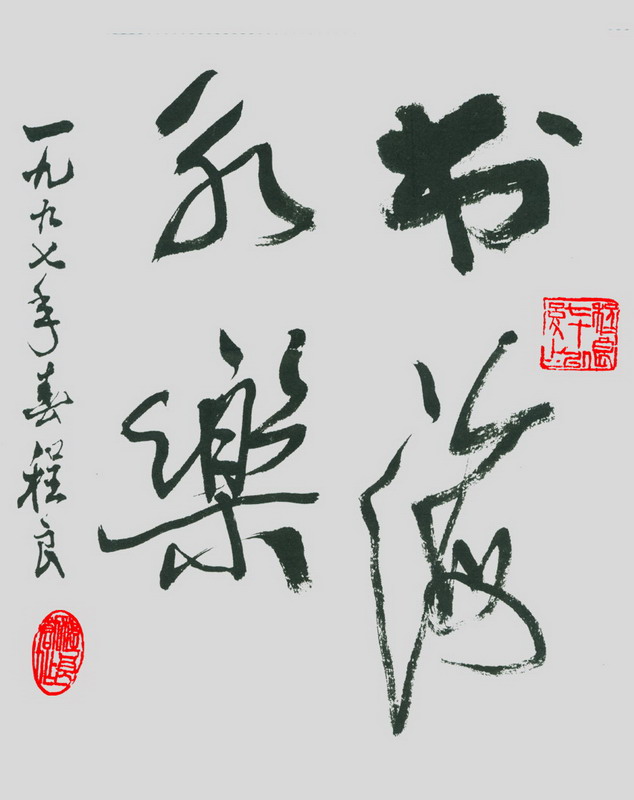 书海
永樂
一九九七年春程良